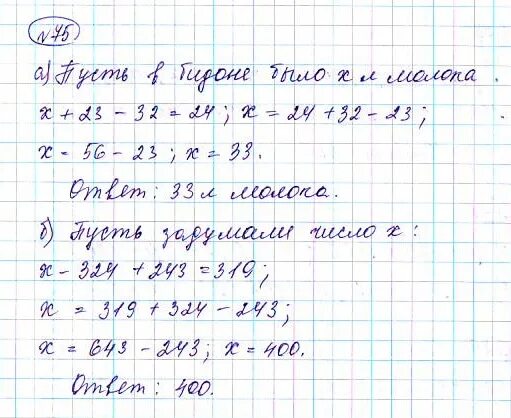 № 75
а) Пусть в бидоне было х л молока.
х + 23 - 32 = 24; х = 24 + 32 - 23;
х = 56 - 23; х = 33.
Ответ: 33 л молока.
б) Пусть задумали число х:
х - 324 + 243 = 319;
х = 319 + 324 - 243;
х = 643 - 243; х = 400.
Ответ: 400.